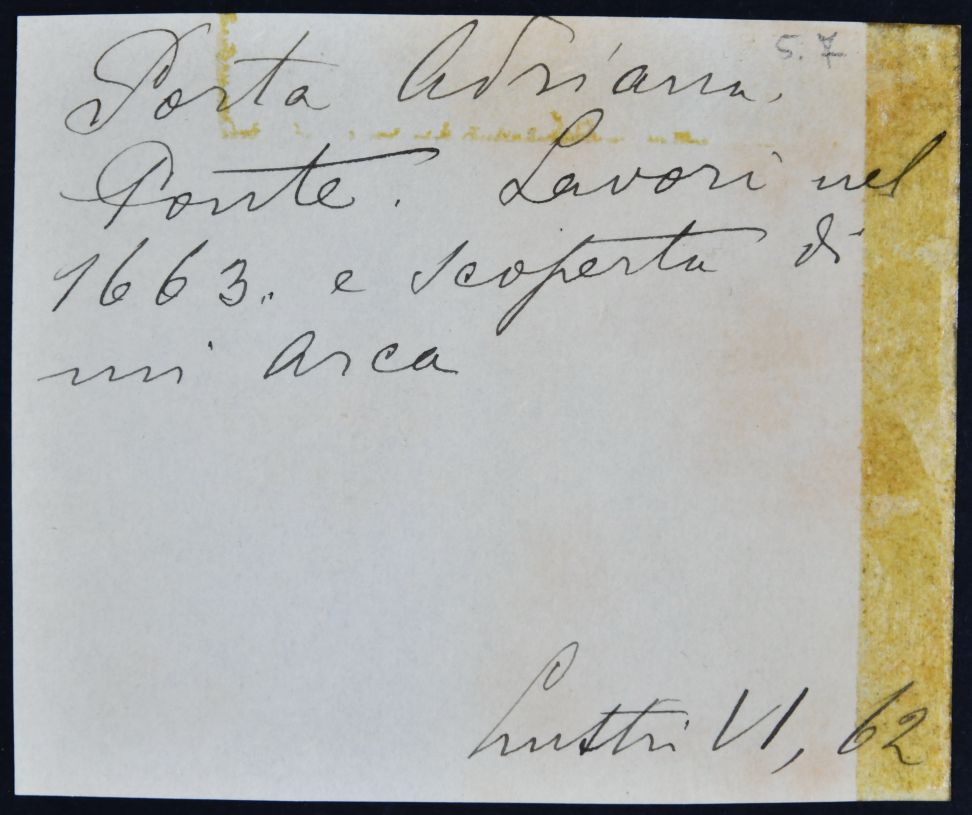 5.7
Porta Adriana.
Ponte. Lavori nel
1663. e scoperta di
un' arca
Lustri VI, 62